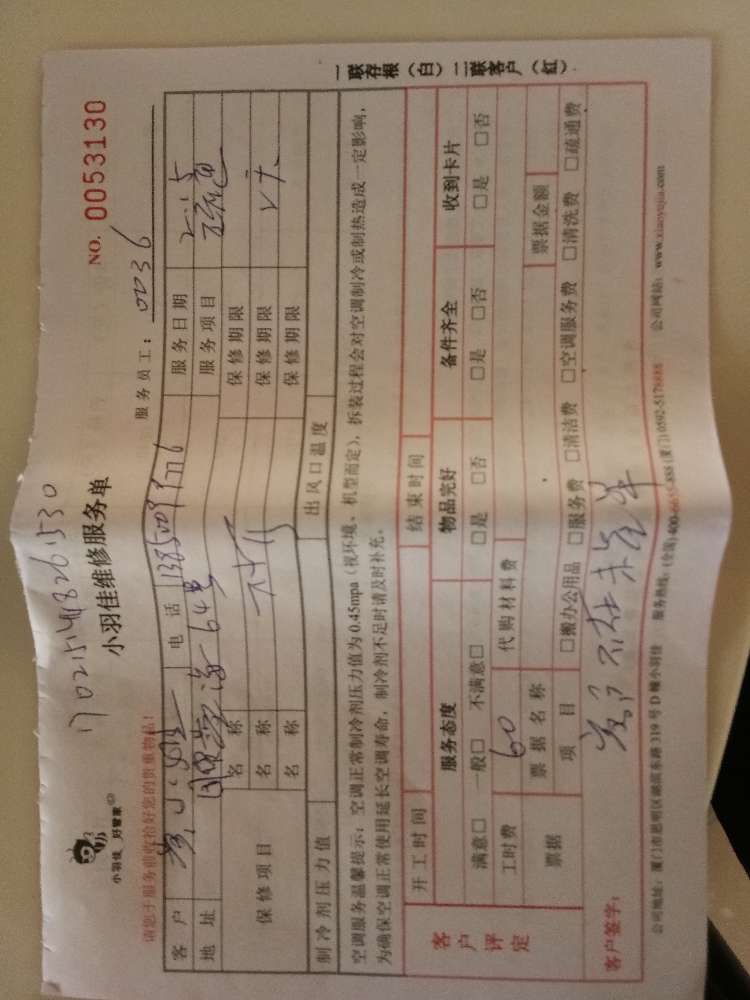 170215148261530
小羽佳 好管家
小羽佳维修服务单
NO. 0053130
请您于服务前收拾好您的贵重物品!
服务员工: 0036
客户 电话 服务日期 2.15
地址 64 服务项目
保修项目 名称 保修期限
名称 保修期限
名称 保修期限
制冷剂压力值 出风口温度
空调服务温馨提示: 空调正常制冷剂压力值为0.45mpa(视环境、机型而定), 拆装过程会对空调制冷或制热造成一定影响,
为确保空调正常使用延长空调寿命, 制冷剂不足时请及时补充。
客户评定
开工时间 结束时间
服务态度 物品完好 备件齐全 收到卡片
满意□ 一般□ 不满意□ □是 □否 □是 □否 □是 □否
工时费 60 代购材料费
票据 票据名称 票据金额
项目 □搬办公用品 □服务费 □清洁费 □空调服务费 □清洗费 □疏通费
客户签字: 不在未签单
公司地址: 厦门市思明区湖滨东路319号D幢小羽佳 服务热线: (全国)400-6655-888 (厦门)0592-5178888 公司网站: www.xiaoyujia.com
一联存根(白)二联客户(红)